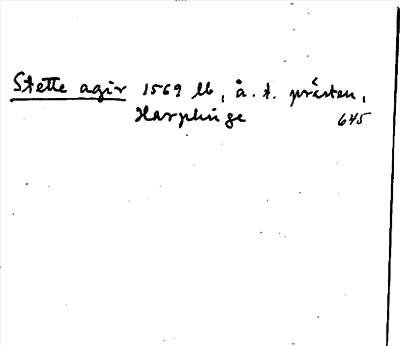 Stette agir 1569 lb, å. t. prästen,
Harplinge 645